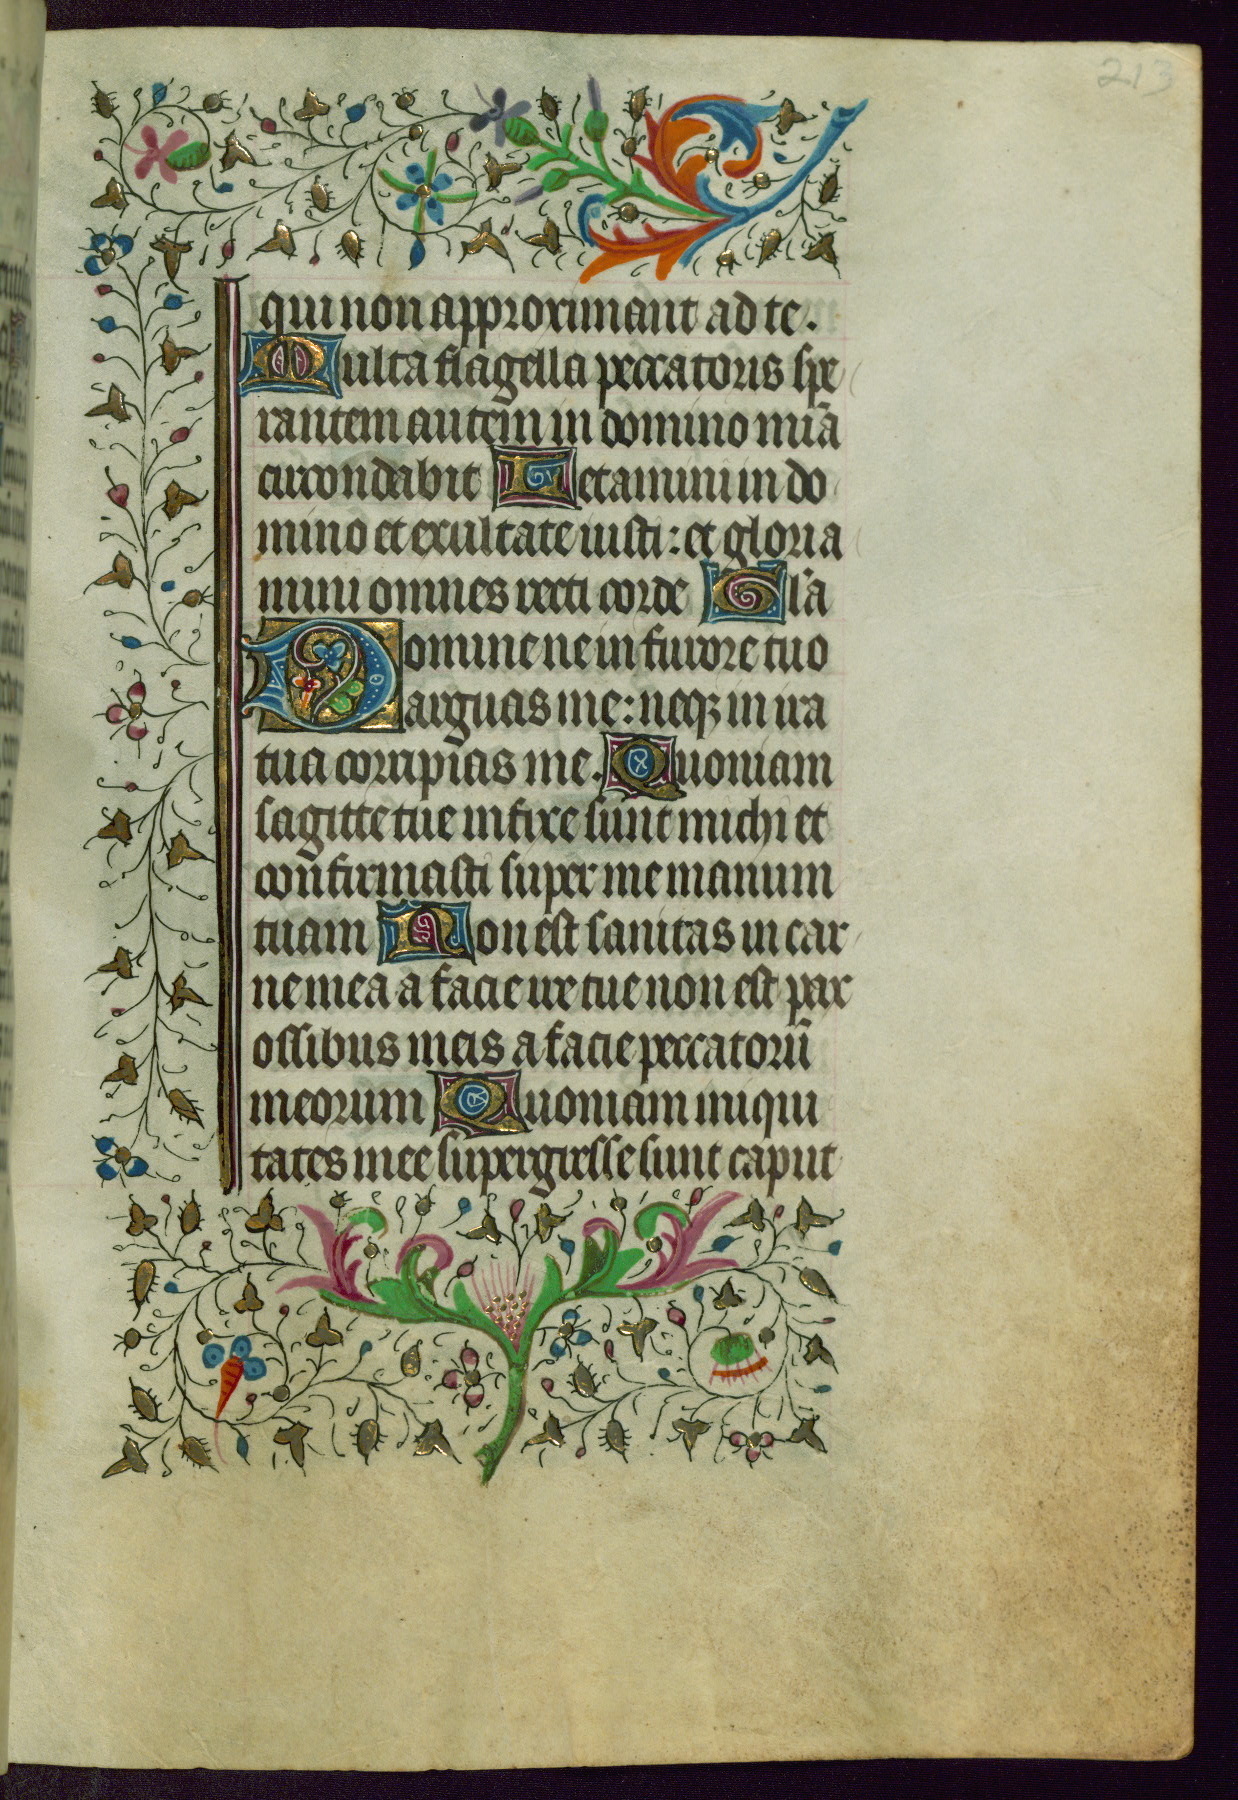 213
qui non approximant ad te.
Multa flagella peccatoris spe
rantem autem in domino mīa
circondabit Letamini in do
mino et exultate iusti: et gloria
mini omnes recti corde Gl'a
Domine ne in furore tuo
arguas me: neqꝫ in ira
tua corripias me. Quoniam
sagitte tue infixe sunt michi et
confirmasti super me manum
tuam Non est sanitas in car
ne mea a facie ire tue non est pax
ossibus meis a facie peccatorū
meorum Quoniam iniqui
tates mee supergresse sunt caput